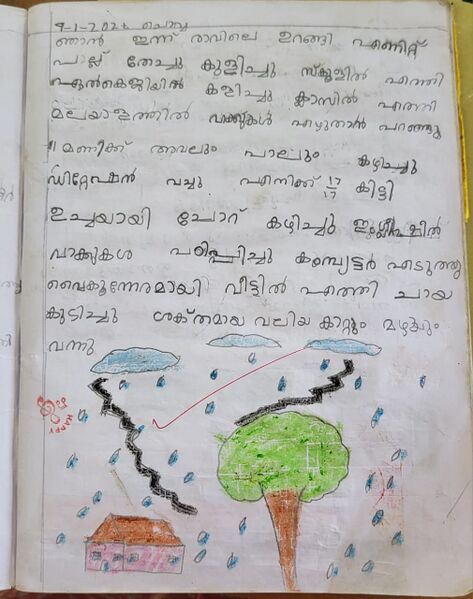 9-1-2024 ചൊവ്വ
ഞാൻ ഇന്ന് രാവിലെ ഉറങ്ങി എണീറ്റ്
പല്ല് തേച്ചു കുളിച്ചു സ്കൂളിൽ എത്തി
എൽകെജിയിൽ കളിച്ചു ക്ലാസിൽ എത്തി
മലയാളത്തിൽ വാക്കുകൾ എഴുതാൻ പറഞ്ഞു
11 മണിക്ക് അവലും പാലും കഴിച്ചു
ഡിറ്റേഷൻ വച്ചു എനിക്ക് 17/17 കിട്ടി
ഉച്ചയായി ചോറ് കഴിച്ചു
വാക്കുകൾ പഠിപ്പിച്ചു കമ്പ്യൂട്ടർ എടുത്തു
വൈകുന്നേരമായി വീട്ടിൽ എത്തി ചായ
കുടിച്ചു ശക്തമായ വലിയ കാറ്റും മഴയും
വന്നു
HAPPY